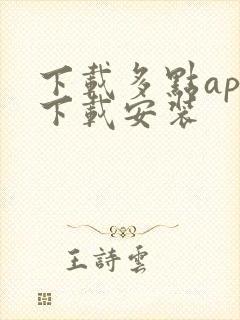 下載多點ap
下載安裝
王詩雲